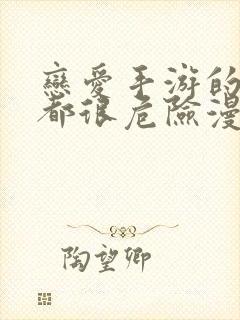 戀愛手游的
都很危險漫
陶望卿